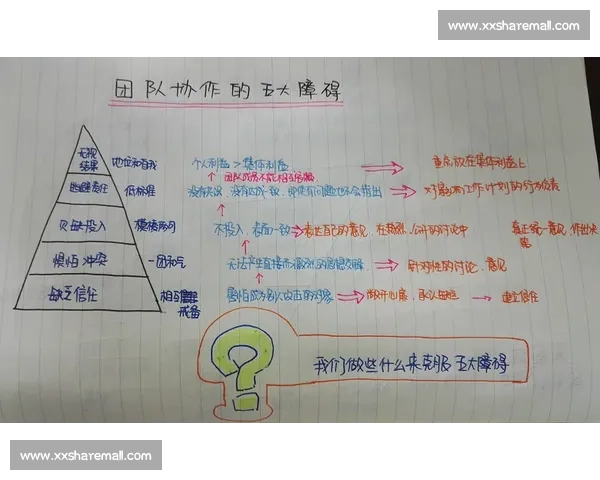 www.xxsharemall.com
团队协作的五大障碍
无视
结果 地位和自我 个人利益 > 集体利益 重点放在集体利益上
团队成员不能相互
逃避责任 低标准 没有共识、没有达成一致,即使有问题也不会指出 对影响工作计划的行为负责
欠缺投入 模棱两可 不投入,表面一致 表达自己的意见,在热烈、公开的讨论中 真正统一意见,作出决
惧怕冲突 一团和气 无法产生直接而激烈的思想交锋 针对性的讨论、意见
缺乏信任 相互
戒备 害怕成为别人攻击的对象 敞开心扉,承认 建立信任
? 我们做些什么来克服五大障碍
www.xxsharemall.com